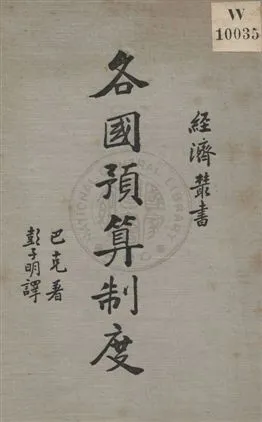 W
10035
經濟叢書
各國預算制度
巴克著
彭子明譯